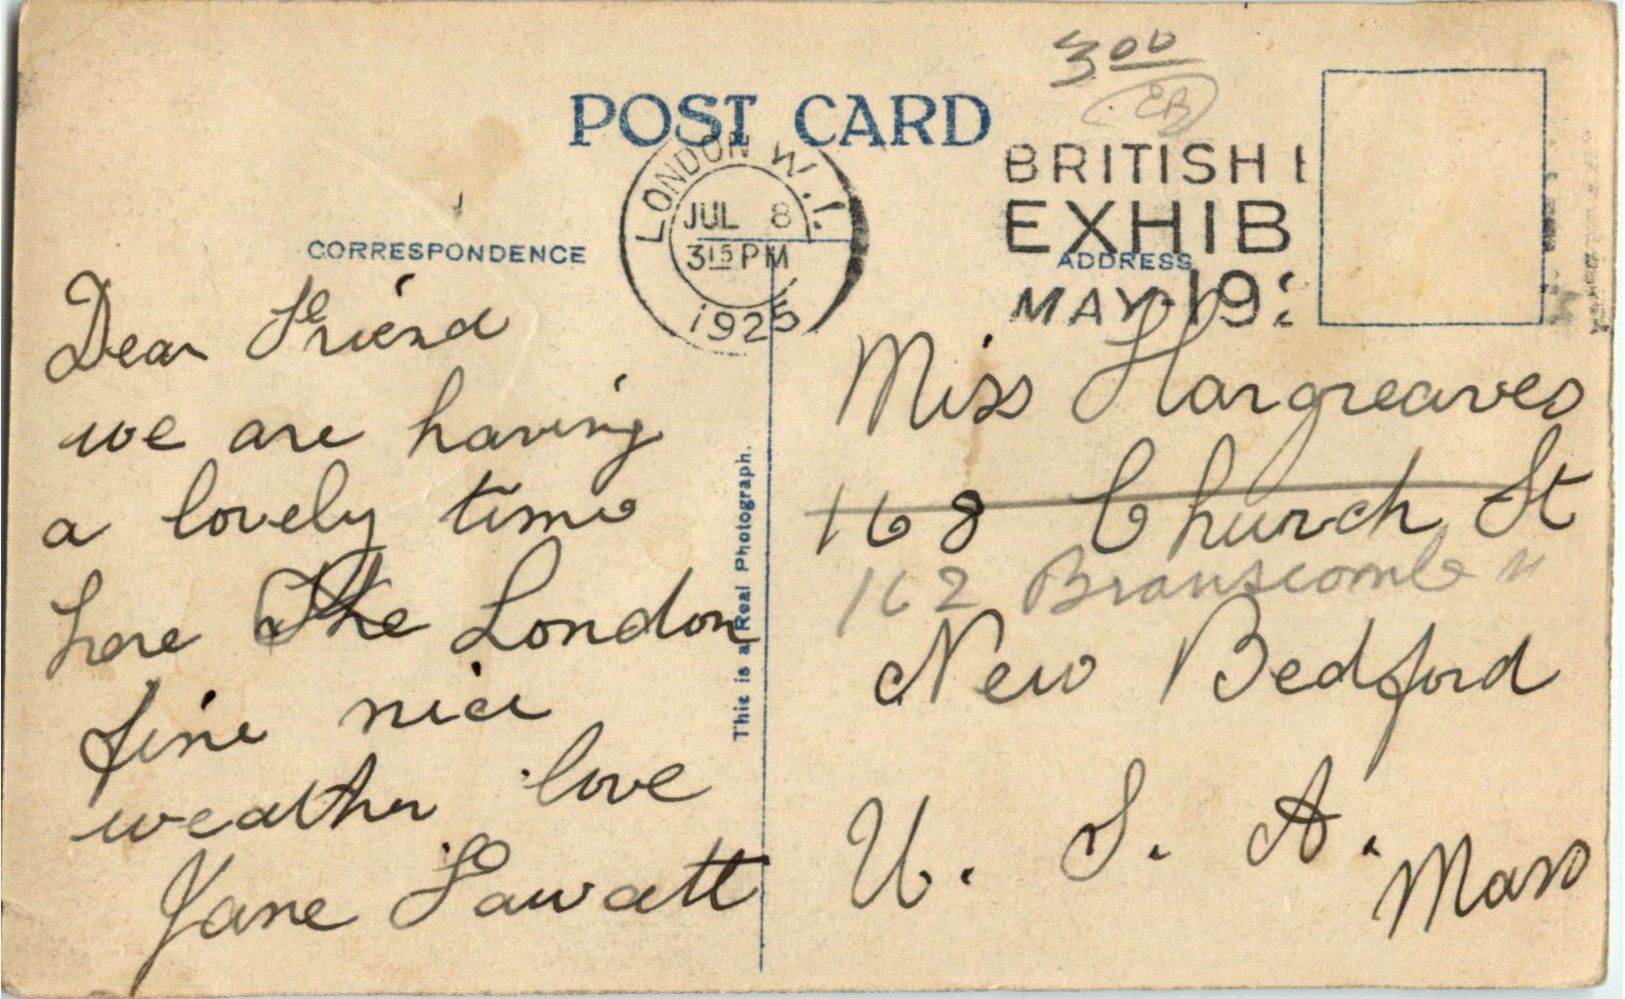 3 00
EB
POST CARD
LONDON W.1.
JUL 8
3 15 PM
1925
BRITISH
EXHIB
MAY - 19
CORRESPONDENCE
ADDRESS
Dear Friend
we are having
a lovely time
here The London
fine nice
weather love
Jane Fawcatt
This is a Real Photograph.
Miss Hargreaves
168 Church St
162 Branscomb "
New Bedford
U. S. A.
Mass